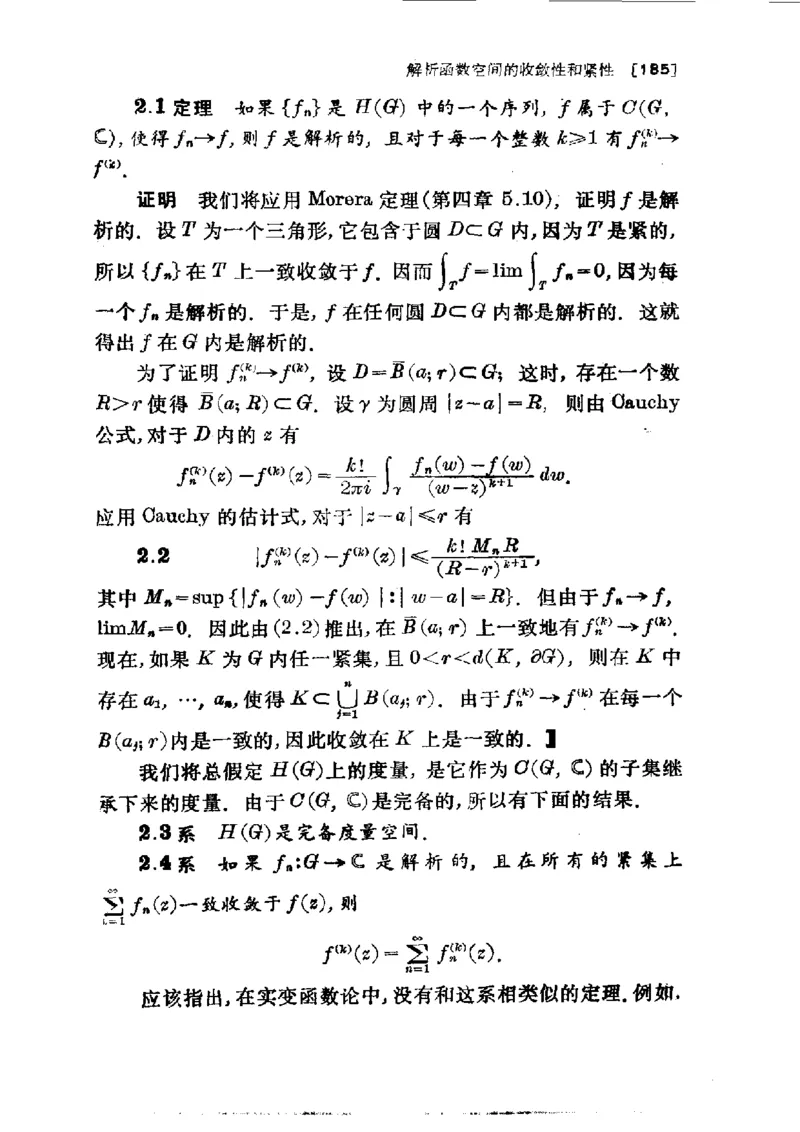 解析函数空间的收敛性和紧性 [185]
2.1 定理 如果 {fₙ} 是 H(G) 中的一个序列, f 属于 C(G,
ℂ), 使得 fₙ→f, 则 f 是解析的, 且对于每一个整数 k⩾1 有 fₙ⁽ᵏ⁾→
f⁽ᵏ⁾.
证明 我们将应用 Morera 定理(第四章 5.10), 证明 f 是解
析的. 设 T 为一个三角形, 它包含于圆 D⊂G 内, 因为 T 是紧的,
所以 {fₙ} 在 T 上一致收敛于 f. 因而 ∫_T f = lim ∫_T fₙ = 0, 因为每
一个 fₙ 是解析的. 于是, f 在任何圆 D⊂G 内都是解析的. 这就
得出 f 在 G 内是解析的.
为了证明 fₙ⁽ᵏ⁾→f⁽ᵏ⁾, 设 D=B̅(a; r)⊂G; 这时, 存在一个数
R>r 使得 B̅(a; R)⊂G. 设 γ 为圆周 |z-a|=R, 则由 Cauchy
公式, 对于 D 内的 z 有
fₙ⁽ᵏ⁾(z) - f⁽ᵏ⁾(z) = k!/(2πi) ∫_γ (fₙ(w)-f(w))/(w-z)^{k+1} dw.
应用 Cauchy 的估计式, 对于 |z-a|⩽r 有
2.2 |fₙ⁽ᵏ⁾(z)-f⁽ᵏ⁾(z)| ⩽ k! MₙR/(R-r)^{k+1},
其中 Mₙ=sup{|fₙ(w)-f(w)|:|w-a|=R}. 但由于 fₙ→f,
limMₙ=0. 因此由(2.2)推出, 在 B̅(a; r) 上一致地有 fₙ⁽ᵏ⁾→f⁽ᵏ⁾.
现在, 如果 K 为 G 内任一紧集, 且 0<r<d(K, ∂G), 则在 K 中
存在 a₁, ⋯, aₙ, 使得 K⊂⋃_{j=1}^{n} B(aⱼ; r). 由于 fₙ⁽ᵏ⁾→f⁽ᵏ⁾ 在每一个
B(aⱼ; r)内是一致的, 因此收敛在 K 上是一致的. 】
我们将总假定 H(G)上的度量, 是它作为 C(G, ℂ) 的子集继
承下来的度量. 由于 C(G, ℂ)是完备的, 所以有下面的结果.
2.3 系 H(G)是完备度量空间.
2.4 系 如果 fₙ:G→ℂ 是解析的, 且在所有的紧集上
∑_{n=1}^{∞} fₙ(z)一致收敛于 f(z), 则
f⁽ᵏ⁾(z) = ∑_{n=1}^{∞} fₙ⁽ᵏ⁾(z).
应该指出, 在实变函数论中, 没有和这系相类似的定理. 例如,